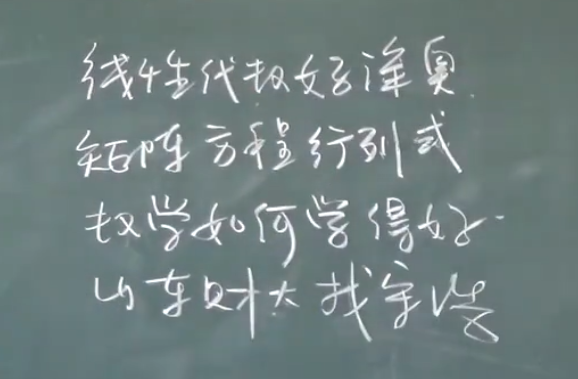 线性代数好深奥
矩阵方程行列式
数学如何学得好
山东财大找宋浩